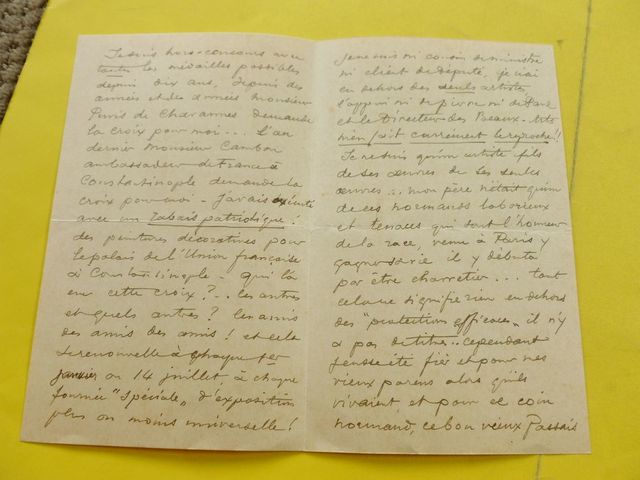 Je suis hors-concours avec
toutes les médailles possibles
depuis dix ans, depuis des
années et des années Monsieur
Puvis de Chavannes demande
la croix pour moi... L'an
dernier Monsieur Cambon
ambassadeur de France à
Constantinople demande la
croix pour moi - J'avais exécuté
avec un rabais patriotique!
des peintures décoratives pour
le palais de l'Union française
à Constantinople - qui l'a
eu cette croix?... les autres
et quels autres? les amis
des amis des amis! et cela
se renouvelle à chaque 1er
janvier ou 14 juillet, à chaque
fournée "spéciale" d'exposition
plus ou moins universelle!
Je ne suis ni cousin de ministre
ni client de député, je n'ai
en dehors des seuls artistes
d'appui ni
et le Directeur des Beaux-Arts
m'en fait carrément le reproche!!
Je ne suis qu'un artiste fils
de ses œuvres de ses seules
œuvres... mon père n'était qu'un
de ces normands laborieux
et tenaces qui sont l'honneur
de la race, venu à Paris y
gagner sa vie il y débuta
par être charretier... tout
cela ne signifie rien en dehors
des "protections efficaces" il n'y
a pas de titres... cependant
j'eusse été fier et pour mes
vieux parens alors qu'ils
vivaient, et pour ce coin
normand, ce bon vieux Passais